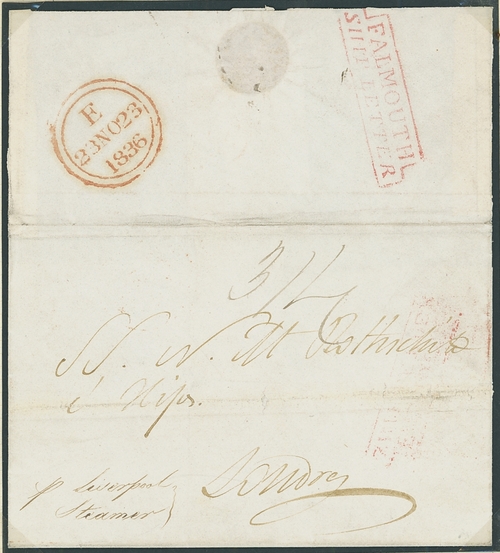 E
23NO23
1836
FALMOUTH
SHIP LETTER
SS. N. M Rothschild
é Hijos.
Londres
p Liverpool
Steamer